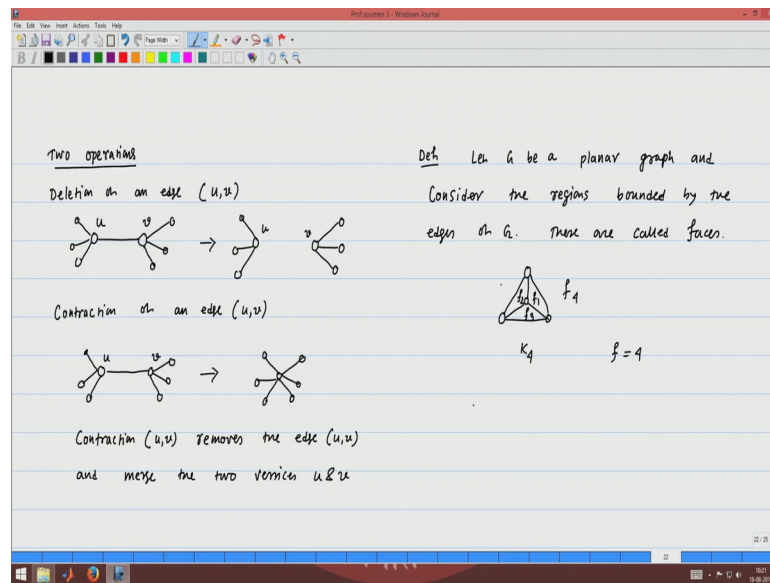 Prof soumen 3 - Windows Journal
File Edit View Insert Actions Tools Help
Page Width
B I
Two operations
Deletion of an edge (u,v)
u v → u v
Contraction of an edge (u,v)
u v →
Contraction (u,v) removes the edge (u,v)
and merge the two vertices u & v
Defn Let G be a planar graph and
Consider the regions bounded by the
edges of G. These are called faces.
f2 f1 f4
f3
K4 f = 4
22 / 25
22
10:21